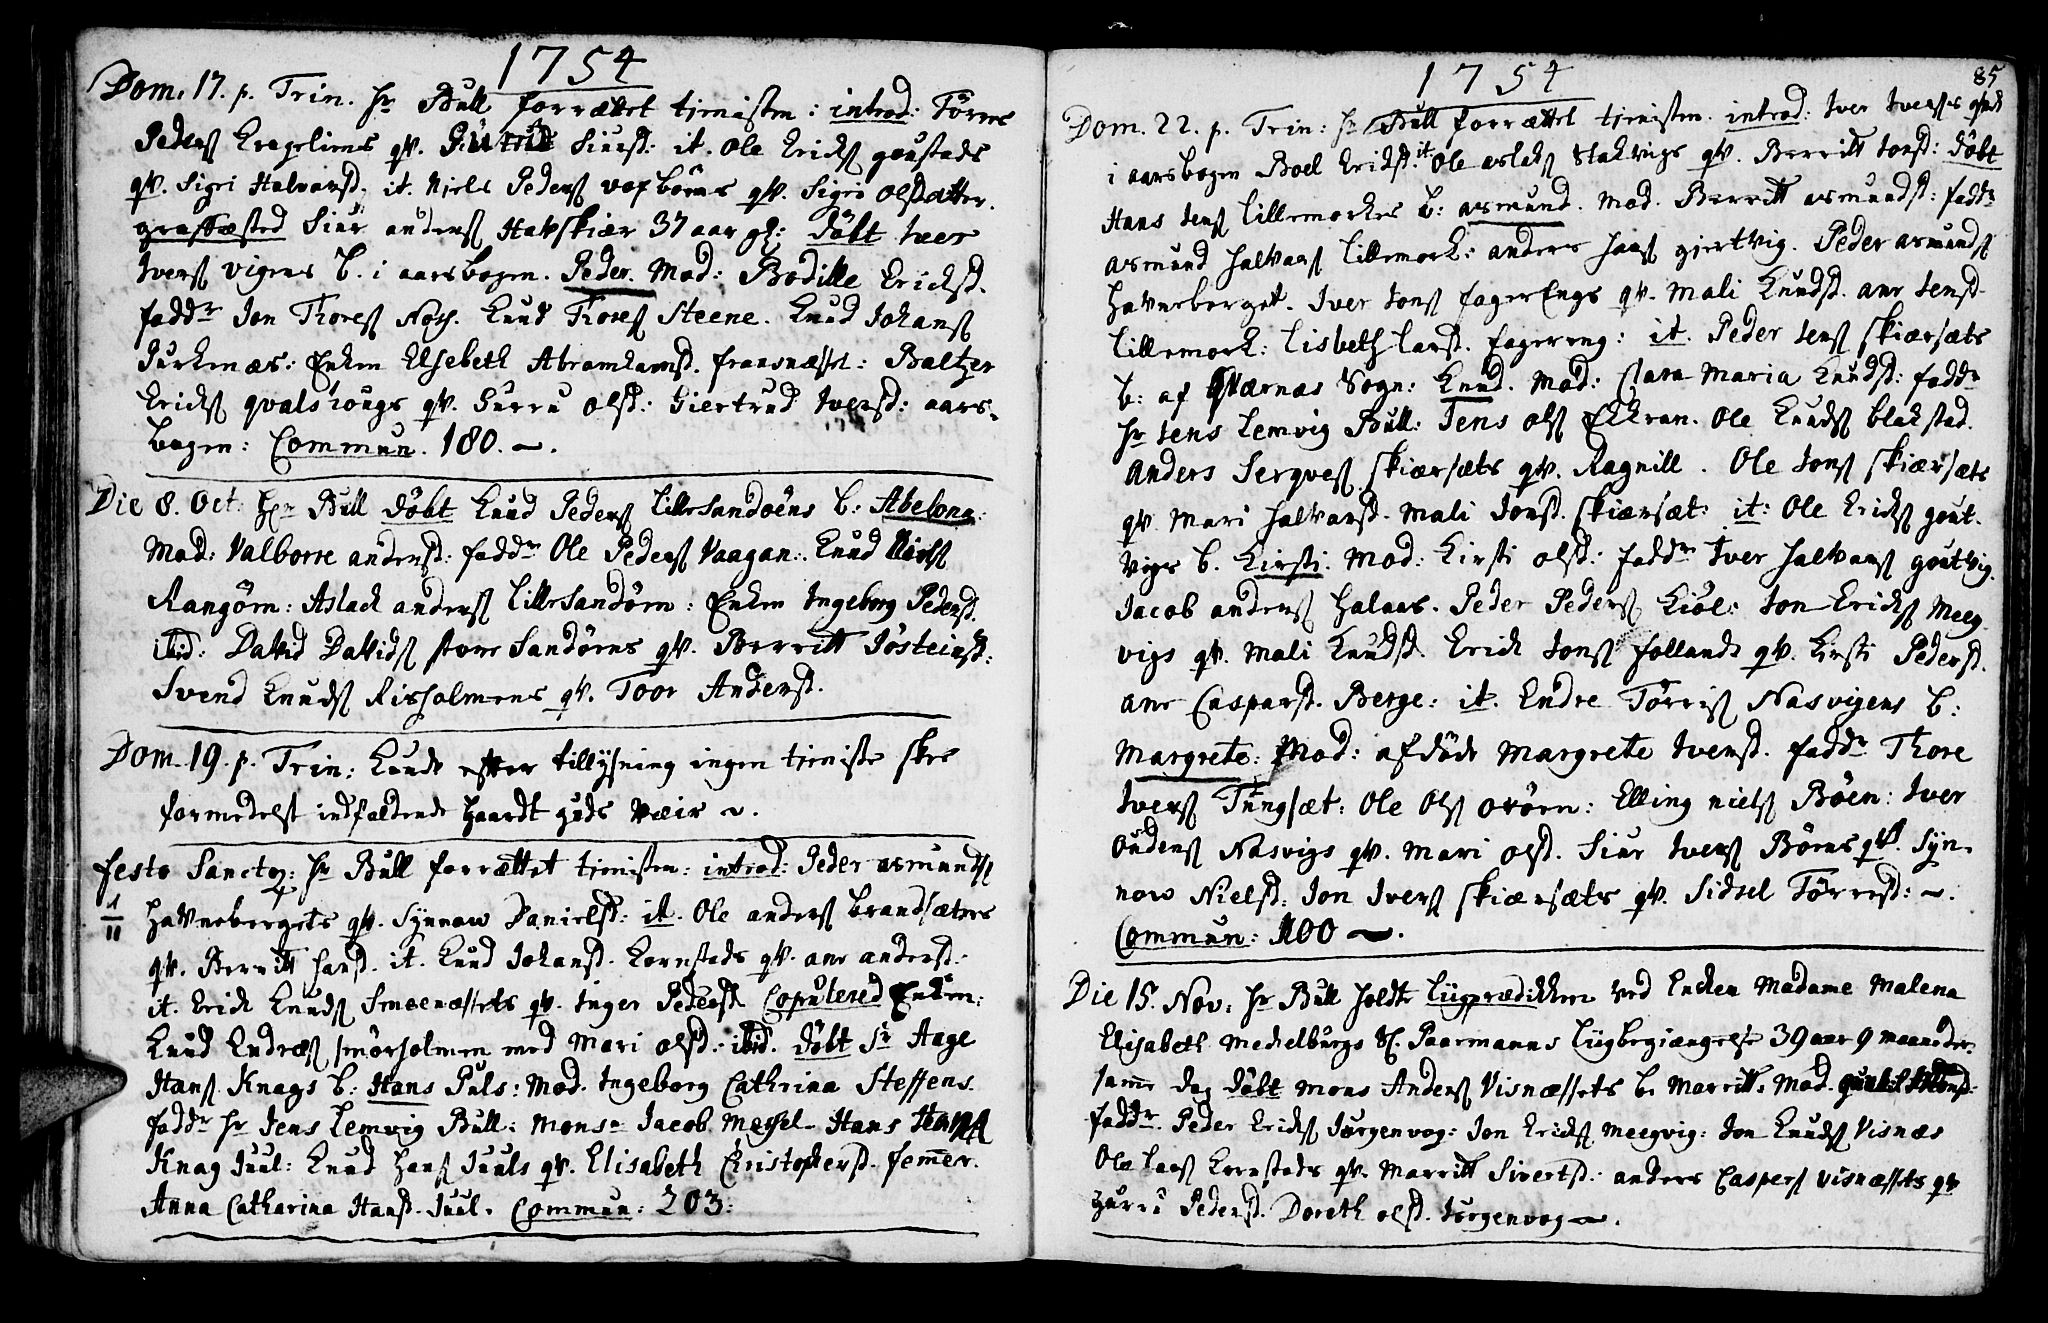 1754
Dom. 17. p. Trin. Hr Bull forrættet tienisten: introd: Törres
Peders Kragelines qv. Siurd: it. Ole Ericks goustads
qv. Sigri Halvarsd. it. Niels Peders qv. Sigri olsdatter.
græsfæsted Siur anders Havskiær 37 aar gl: döbt Iver
Ivers vigens b. i aarsbogen. Peder. Mod: Bodille Ericksd.
faddr Jon Thores Nás. Knud Thores Steene. Knud Johans
Julkenæs: Enken Elsebeth Abramhamsd. fransnæsset: Baltzer
Ericks qvalshougs qv. Gurru olsd: Giertrud Iversd: aars-
bogen: Commun. 180. –.
Die 8. Oct: Hr Bull döbt Knud Peders LilleSandöens b: Abelona:
Mod: Valborre andersd: faddr Ole Peders Vaagan: Knud Niels
Rangöen: Aslack anders LilleSandöen: Enken Ingeborg Pedersd.
ibid: David Davids store Sandöens qv. Berritt Jösteinsd:
Svend Knuds Risholmens qv. Toor Andersd.
Dom. 19. p. Trin: Kunde efter tillysning ingen tieniste skee
formedelst indfaldende haardt guds Væir ~.
Festo Sanctor: Hr Bull forrættet tienisten: introd: Peder asmunds
1/11 Havnebergets qv. Synnow Danielsd: it. Ole anders brandsæters
qv. Berritt Hansd. it. Knud Johansd. Kornstads qv. ane andersd.
it. Erick Knuds Smeenæssets qv. Inger Pedersd Copulered Enken:
Knud Endres smörholmen med Mari olsd: ibid. döbt Sr Aage
Hans Knags b: Hans Puls: Mod. Ingeborg Cathrina Steffens
faddr Hr Jens Lemvig Bull: Monsr Jacob Hans Hans
Knag Juul: Knud Hans Juuls qv. Elisabeth Christophersd. femmer.
Anna Catharina Hansd. Juul. Commun: 203:
85
1754
Dom. 22. p. Trin: Hr Bull forrættet tienisten. introd: Iver Ivers qv.
i aarsbogen Boel Ericksd: it Ole aslaks Stakvigs qv. Berritt Jonsd: döbt
Hans Jens Lillemorkes b: asmund. Mod. Berritt asmundsd: faddr
asmund halvars Lillemork: anders Hans giertvig. Peder asmunds
Havneberget. Iver Jons fagerEngs qv. Mali Knudsd. ane Jensd.
Lillemork: Lisbeth Larsd. fagereng: it. Peder Jens skiærsæts
b: af qværnæs Sogn: Knud. Mod: Clara Maria Knudsd: faddr
Hr Jens Lemvig Bull: Jens ols Ekkran. Ole Knuds blakstad.
Anders Serqves skiærsæts qv. Ragnill. Ole Jons skiærsæts
qv. Mari halvarsd. Mali Jonsd. skiærsæt: it: Ole Ericks gout-
vigs b. Kirsti. Mod: Kirsti olsd: faddr Iver halvars goutvig.
Jacob anders halaas. Peder Peders Kiöl: Jon Ericks Meeg-
vigs qv. Mali Knudsd. Erick Jons follands qv. Kirsti Pedersd.
ane Caspersd. Berge: it. Endre Törris Nasvigens b:
Margrete: Mod: afdöde Margrete Iversd. faddr Thore
Ivers Tungsæt: Ole Ols oröen: Elling niels Böen: Iver
Oudens Nasvigs qv. Mari olsd. Siur Ivers Böens qv. Syn-
now Nielsd: Jon Ivers skiærsæts qv. Sidsel Törresd: ~.
Commun: 100 ~.
Die 15. Nov: Hr Bull holdte Liigprædikken ved Encken Madame Malena
Elisabeth Mechelburgs Sl. Paarmanns Liigbegiængelse 39 aar 9 maaneder.
samme dag döbt Mons Anders Visnæssets b: Marritt. Mod.
faddr. Peder Ericks Jörgenvog: Jon Ericks Meegvig: Jon Knuds Visnæs
Ole Lars Kornstads qv. Marritt Sivertsd: anders Caspers visnæssets qv
gurru Pedersd. Doreth olsd. Jörgenvog ~.